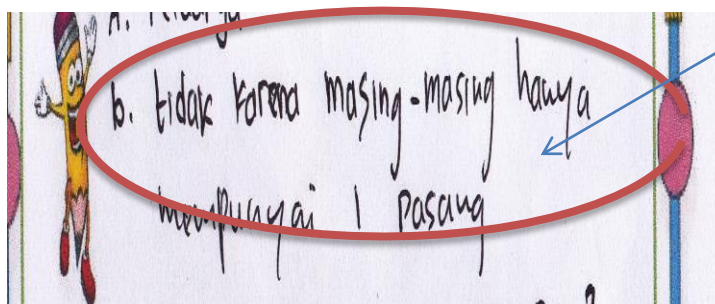 b. tidak karena masing-masing hanya
mempunyai 1 pasang